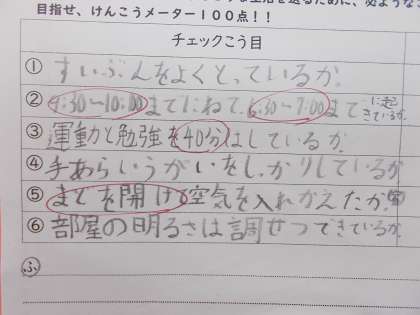 目指せ、けんこうメーター１００点！！
チェックこう目
① すいぶんをよくとっているか。
② 9:30〜10:00までにねて、6:30〜7:00までに起きているか。
③ 運動と勉強を40分はしているか。
④ 手あらいうがいをしっかりしているか
⑤ まどを開けて空気を入れかえたか。
⑥ 部屋の明るさは調せつできているか。
ふ